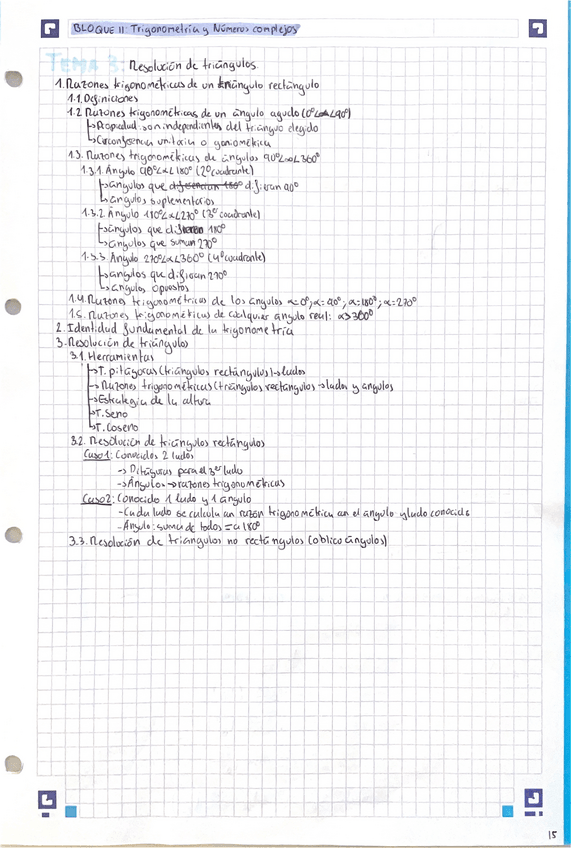 BLOQUE II: Trigonometría y Números complejos
TEMA 3: Resolución de triángulos
1. Razones trigonométricas de un triángulo rectángulo
1.1. Definiciones
1.2 Razones trigonométricas de un ángulo agudo (0°<α<90°)
Propiedad: son independientes del triángulo elegido
Circunferencia unitaria o goniométrica
1.3. Razones trigonométricas de ángulos 90°<α<360°
1.3.1. Ángulo 90°<α<180° (2º cuadrante)
ángulos que diferencian 180° difieran 90°
ángulos suplementarios
1.3.2. Ángulo 180°<α<270° (3er cuadrante)
ángulos que difieren 180°
ángulos que suman 270°
1.3.3. Ángulo 270°<α<360° (4º cuadrante)
ángulos que difieran 270°
ángulos opuestos
1.4. Razones trigonométricas de los ángulos α=0°; α=90°; α=180°; α=270°
1.5. Razones trigonométricas de cualquier ángulo real: α>360°
2. Identidad fundamental de la trigonometría
3. Resolución de triángulos
3.1. Herramientas
T. pitágoras (triángulos rectángulos)→lados
Razones trigonométricas (triángulos rectángulos→lados y ángulos
Estrategia de la altura
T. Seno
T. Coseno
3.2. Resolución de triángulos rectángulos
Caso 1: Conocidos 2 lados
→Pitágoras para el 3er lado
→Ángulos→razones trigonométricas
Caso 2: Conocido 1 lado y 1 ángulo
-Cada lado se calcula con razón trigonométrica con el ángulo y lado conocido
-Ángulo: suma de todos = a 180°
3.3. Resolución de triangulos no rectángulos (oblicuángulos)
15